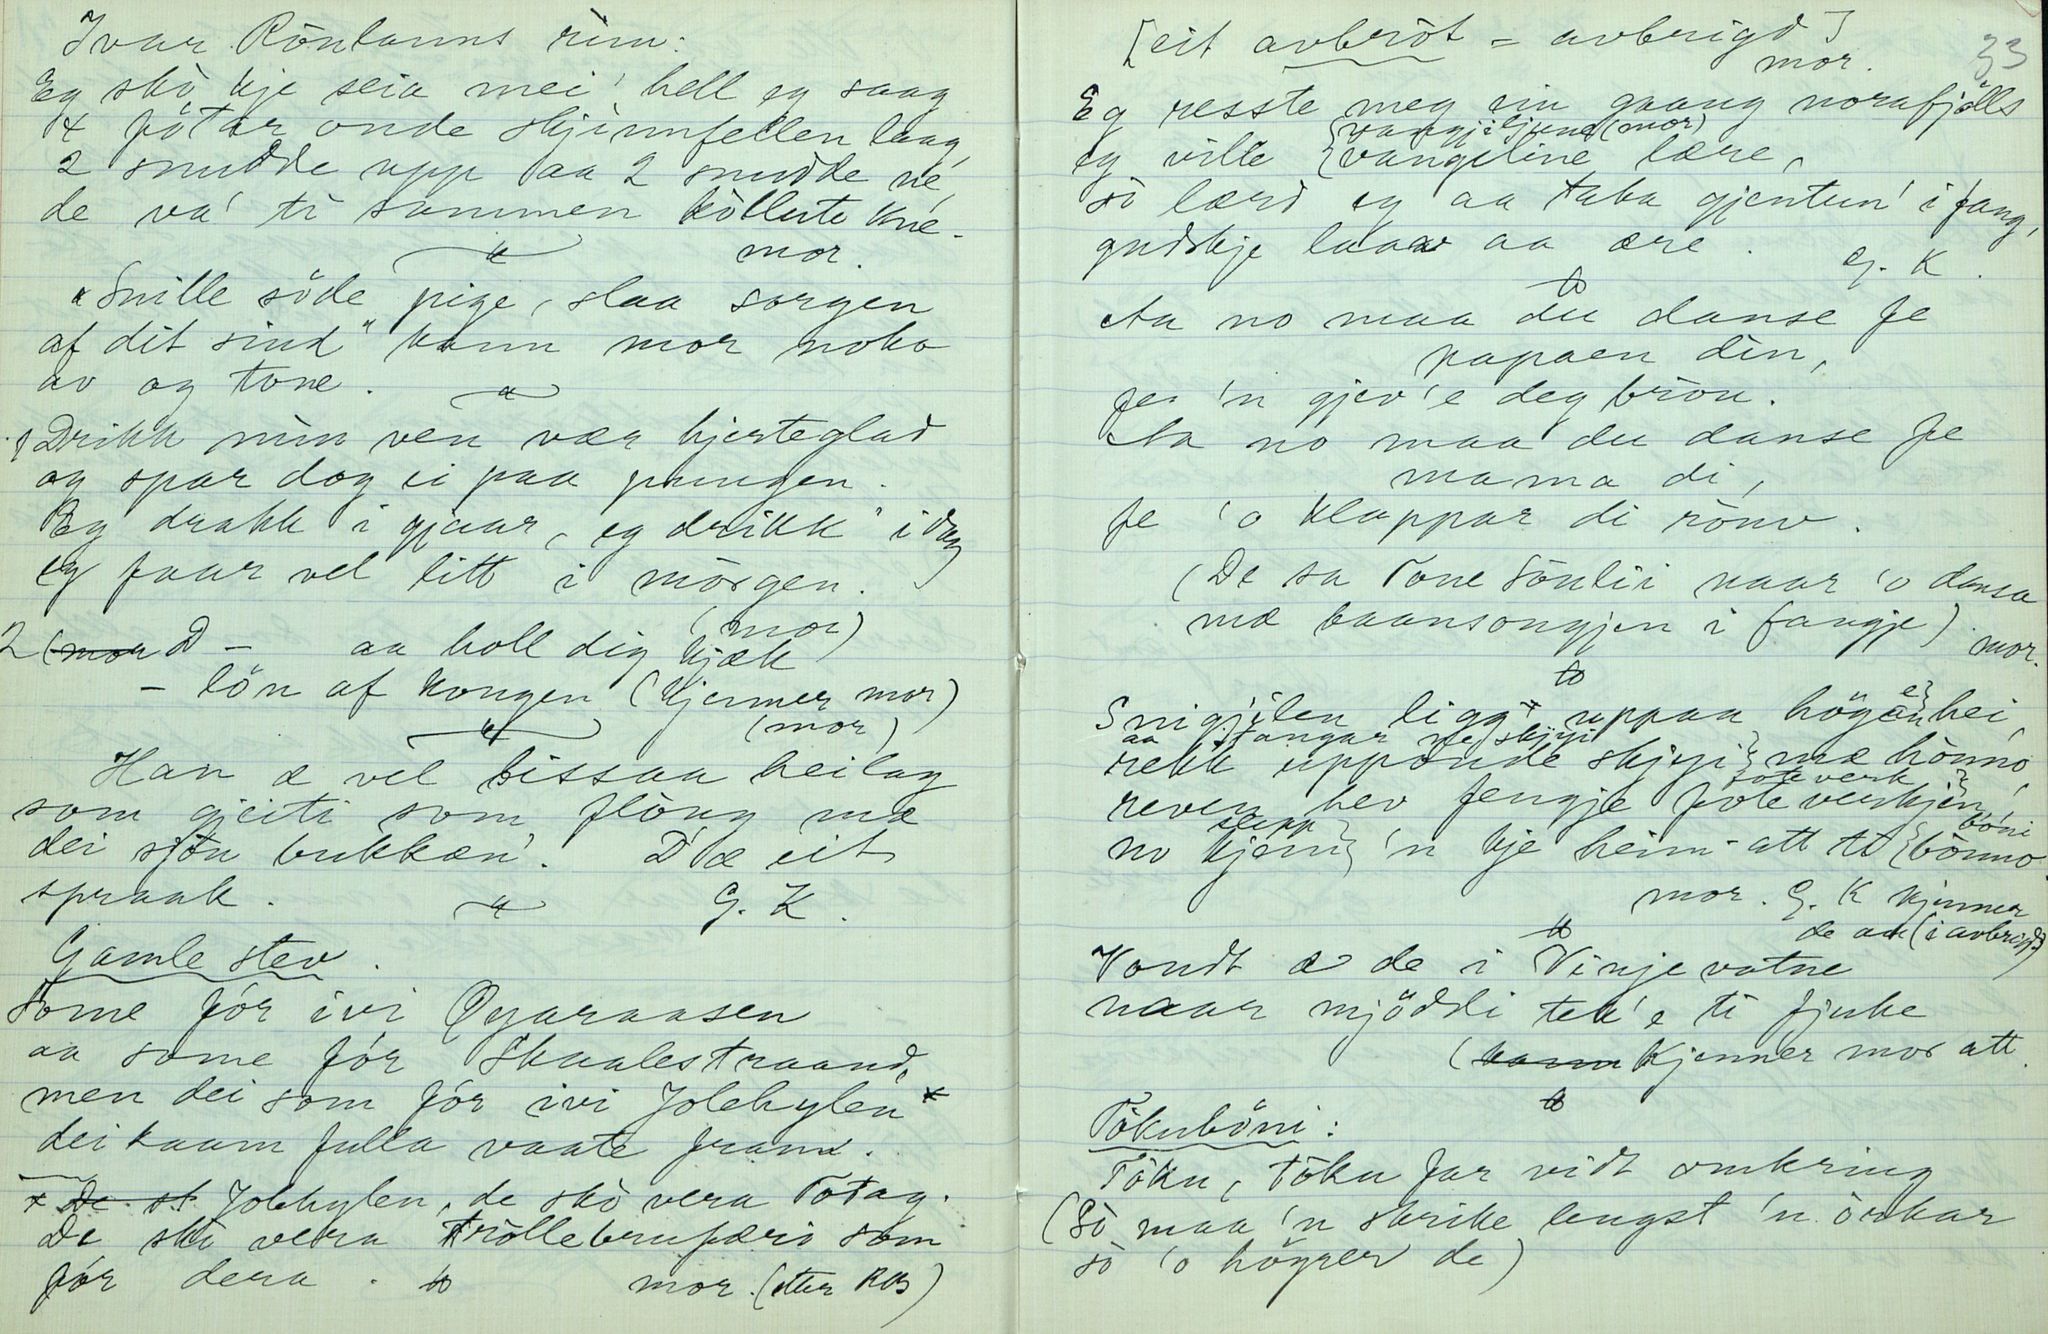 Ivar Röntanns rim:
Eg sko kje seia mei' hell eg saag
4 fötar onde skjinnfellen laag
2 snudde upp aa 2 snudde né
de va' ti sammen köllute kné.
mor.
"Snille söde pige, slaa sorgen
af dit sind" kann mor noko
av og tone.
Drikk min ven vær hjerteglad
og spar dog ei paa pungen.
Eg drakk i gjaar, eg drikk i dag
eg faar vel litt i mörgen.
(mor)
2 (mor D – aa holl dig kjæk
– lön af kongen (kjenner mor)
(mor)
Han æ vel kissaa heilag
som gjeiti som flöug mæ
dei sjöu bukkæn'. D'æ eit
spraak. G. K.
Gamle stev.
Some fór ivi Öyaraasen
aa some fór Skaalestraand,
men dei som fór ivi Jolehylen x
dei kaam fulla vaate fram.
x De sk Jolehylen, de sko vera Totag.
De sko vera Tröllebrufæri som
fór dera. mor. (etter RB)
33
[eit avbröt = avbrigd]
mor.
Eg resste meg ein gaang norafjölls
vangjiljune (mor)
eg ville vangeline lære,
so lærd eg aa taka gjentun' i fang,
gudskje laav aa ære.
G. K.
Aa no maa du danse fe
papaen din,
fe 'n gjev'e deg brön.
Aa no maa du danse fe
mama di,
fe 'o klappar di römv.
(De sa Tone Sönlii naar 'o dansa
mæ baansongjen i fangje)
mor.
Snigjilen ligg uppaa högan hei,
aa fangar ne skjyi
rekk upponde skjyi mæ hönno,
foteverk
reven hev fengje foteverkjen,
slepp böni
no kjem 'n kje heim-att te bönno.
mor. G. K kjenner
de au (i avbrigd)
Vondt æ de i Vinjevatne
naar mjöddi tek'e ti fjuke
(kann kjenner mor att.
Tökuböni:
Töku, töku far vidt omkring
(So maa 'n skrike lengst 'n örkar
so 'o höyrer de)